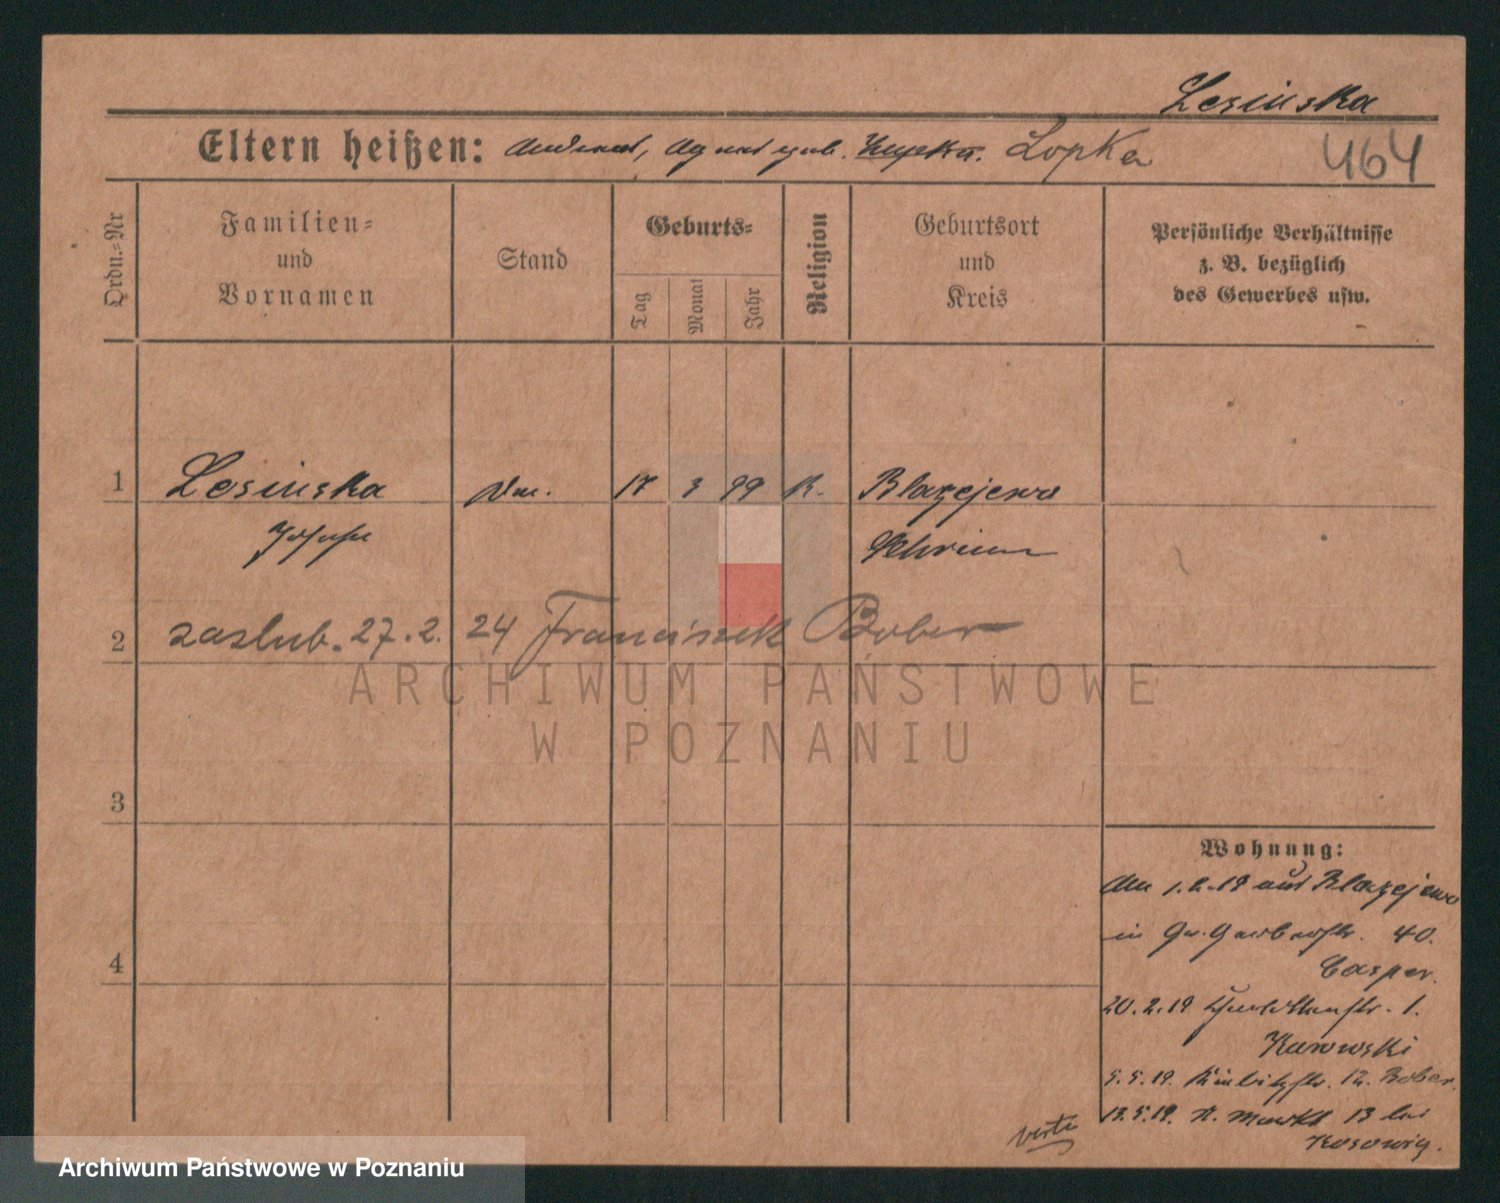 Lesinska
Eltern heißen: Andreas, Agnes geb. Kupka. Lopka
464
Ordn.=Nr
Familien=
und
Vornamen
Stand
Geburts=
Tag
Monat
Jahr
Religion
Geburtsort
und
Kreis
Persönliche Verhältnisse
z. B. bezüglich
des Gewerbes usw.
1 Lesinska 17 3 99 K. Blazejewo
Josefa Schrimm
2 zaslub. 27.2. 24 Franciszek Bober
3
4
Wohnung:
Am 1.2.19 aus Blazejewo
in Gr. Gerberstr. 40.
Casper.
20.2.19 1.
Karowski
5.5.19. 12. Bober.
13.5.19. A. Markt 13 bei
verte
ARCHIWUM PAŃSTWOWE
W POZNANIU
Archiwum Państwowe w Poznaniu